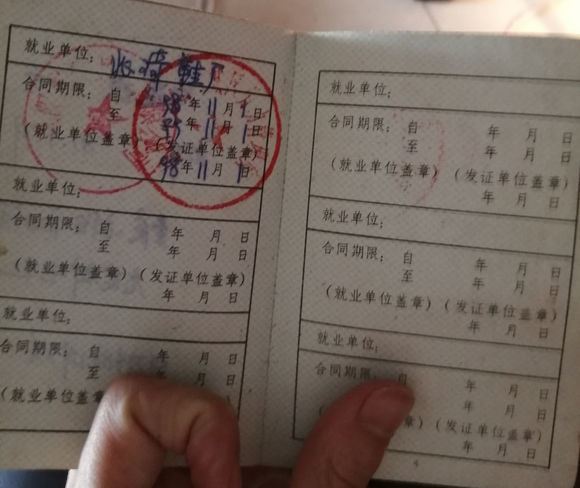 就业单位：鞋厂
合同期限：自 98年 11月 1日
至 年 11月 1日
（就业单位盖章）（发证单位盖章）
98年 11月 1日
就业单位：
合同期限：自 年 月 日
至 年 月 日
（就业单位盖章）（发证单位盖章）
年 月 日
就业单位：
合同期限：自 年 月 日
至 年 月 日
（就业单位盖章
日
就业单位：
合同期限：自 年 月 日
至 年 月 日
（就业单位盖章）（发证单位盖章）
年 月 日
就业单位：
合同期限：自 年 月 日
至 年 月 日
（就业单位盖章）（发证单位盖章）
年 月 日
就业单位：
合同期限：自 年 月 日
年 月 日
章）（发证单位盖章）
年 月 日